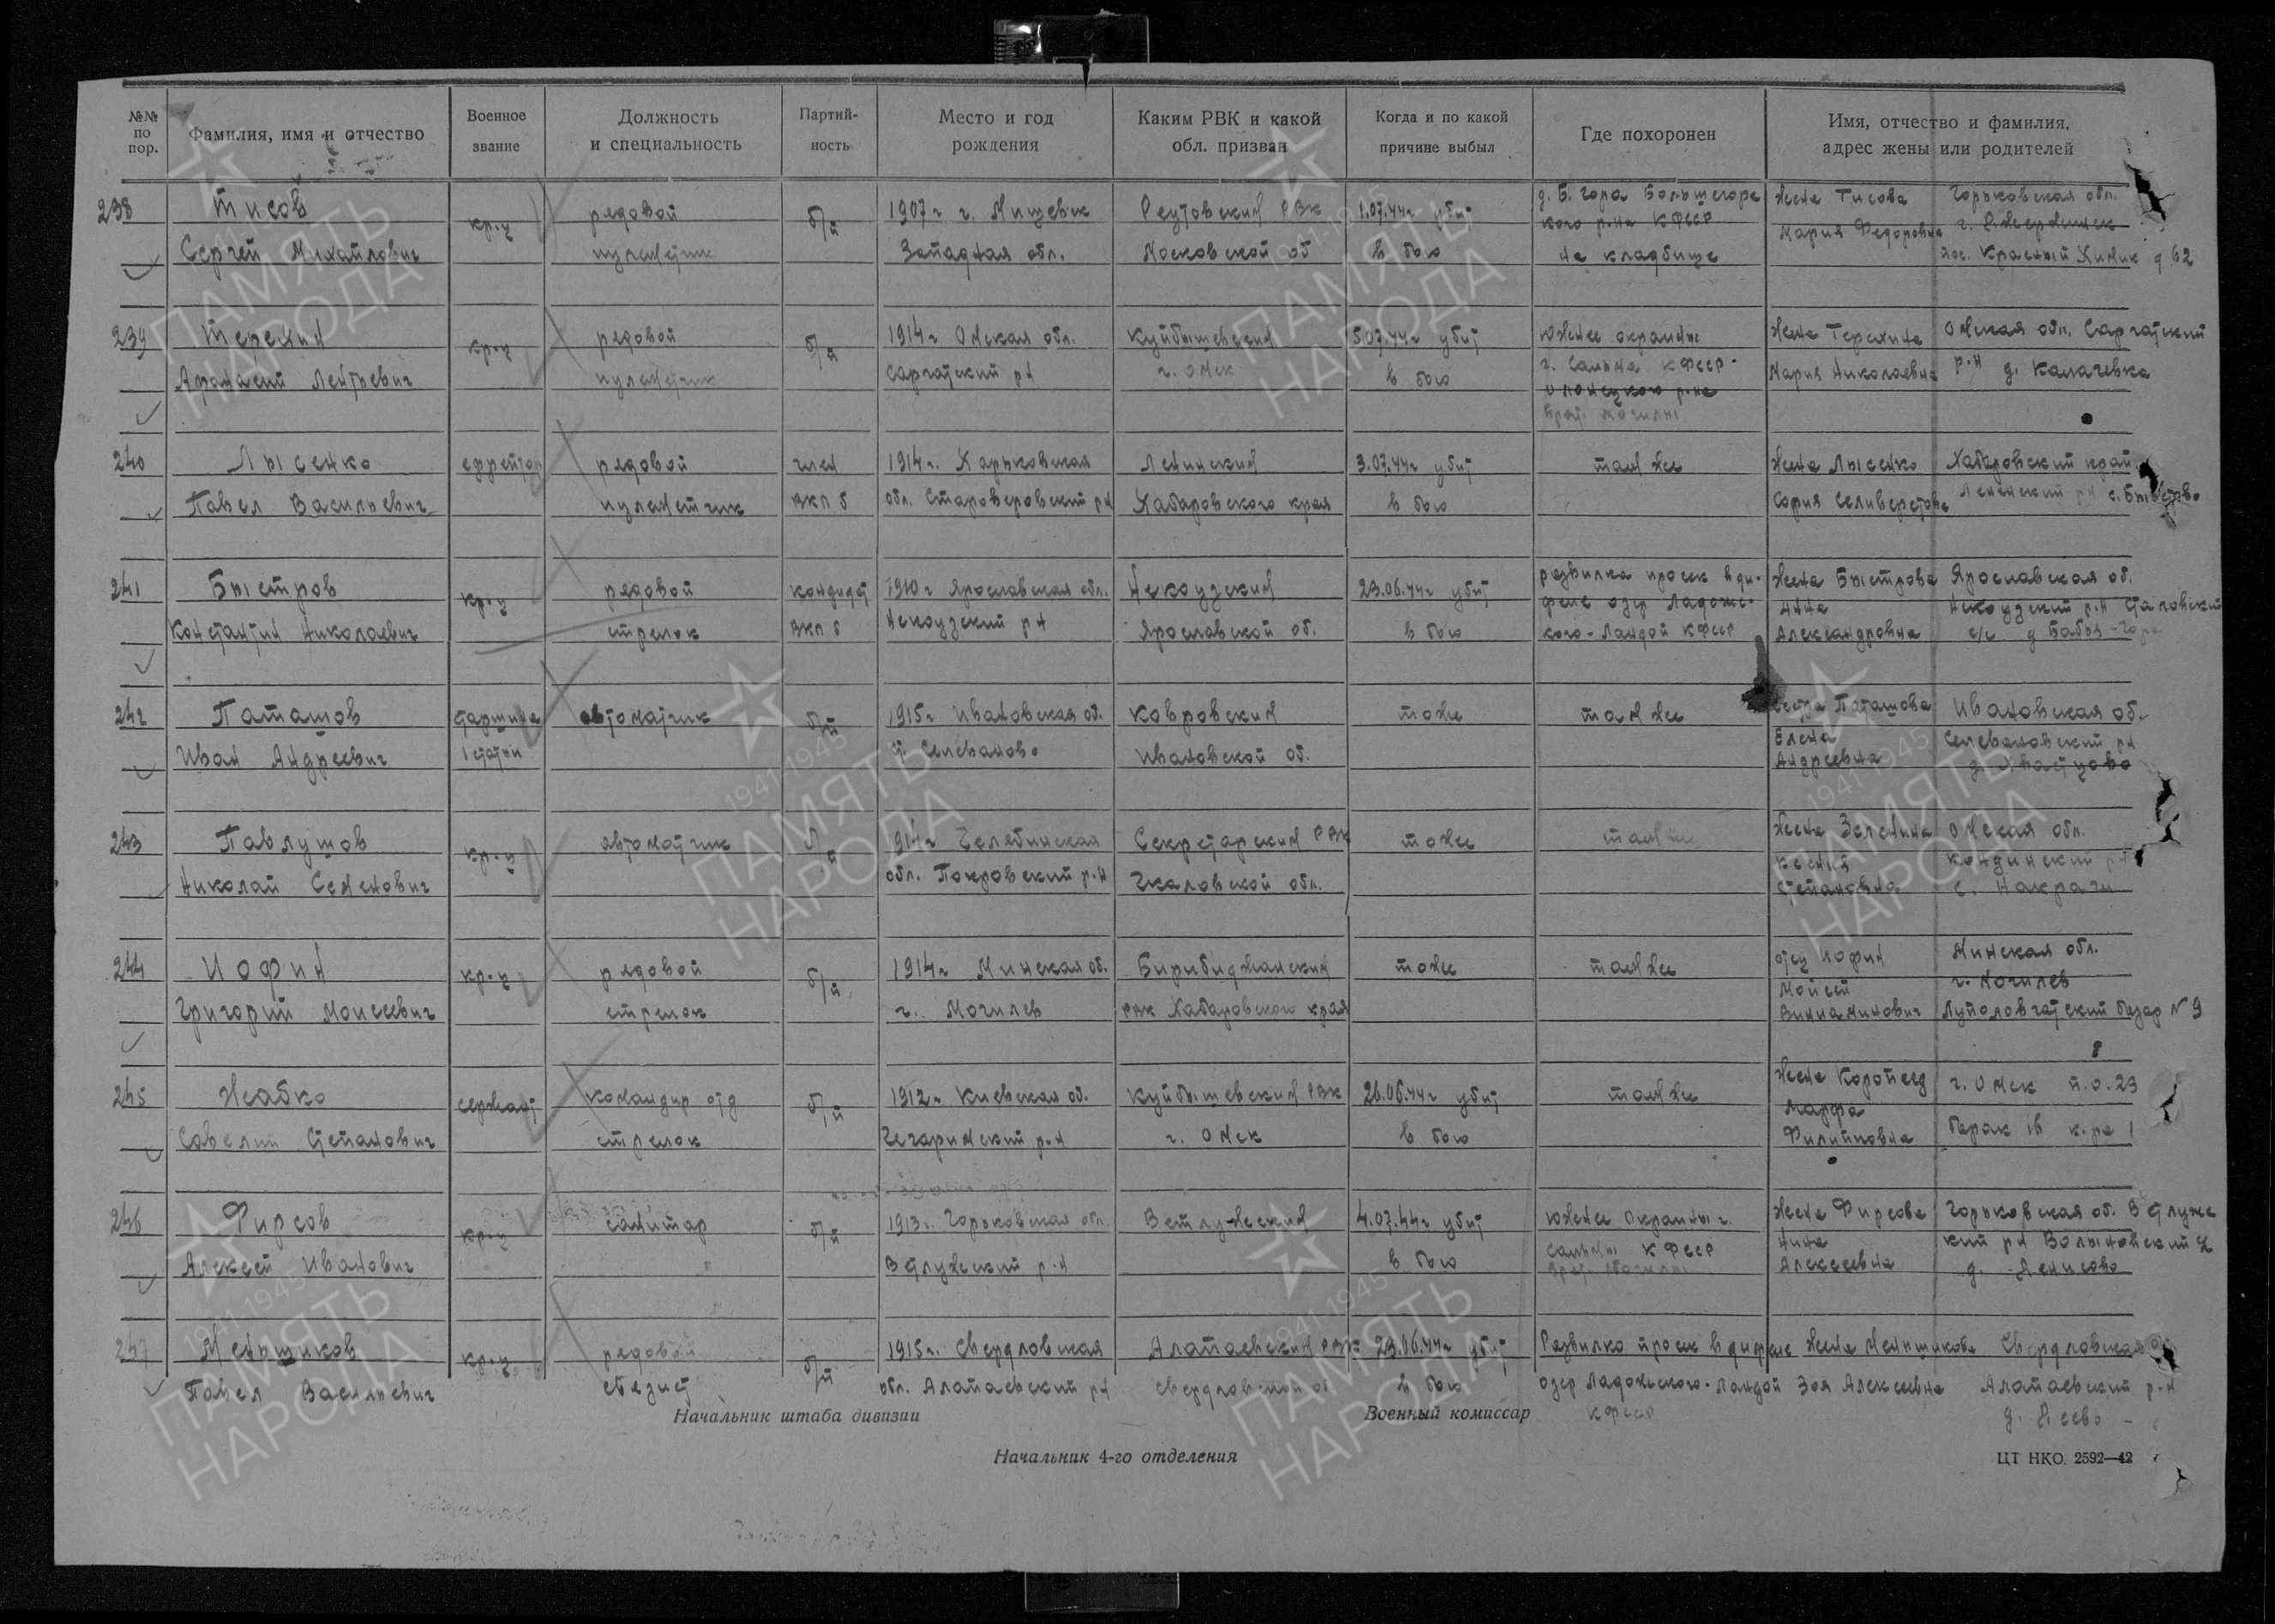 №№ по пор.
Фамилия, имя и отчество
Военное звание
Должность и специальность
Партий-ность
Место и год рождения
Каким РВК и какой обл. призван
Когда и по какой причине выбыл
Где похоронен
Имя, отчество и фамилия, адрес жены или родителей
238 Тисов кр-ц рядовой б/п 1907 г г. Реутовский РВК 1.07.44г убит д. Б. Гора Жена Тисова Горьковская обл.
Сергей Михайлович пулеметчик Западная обл. Московской об в бою на кладбище Мария Федоровна пос. Красный Химик д 62
239 кр-ц рядовой б/п 1914г Омская обл. Куйбышевский 5.07.44г убит Южнее окраины Жена Омская обл. Саргатский
пулеметчик Саргатский рн г. Омск в бою г. Сальма КФССР Мария Николаевна р-н д. Калачевка
Олонецкого р-на
Брат. могилы
240 Лысенко ефрейтор рядовой член 1914г. Харьковская Ленинский 3.07.44г убит там же Жена Лысенко Хабаровский край
Павел Васильевич пулеметчик ВКП б обл. Староверовский рн Хабаровского края в бою Ленинский рн
241 Быстров кр-ц рядовой кандидат 1910г Ярославская обл. Некоузский 23.06.44г убит развилка просек в ди- Жена Быстрова Ярославская об.
Константин Николаевич стрелок ВКП б Некоузский рн Ярославской об. в бою филе озер Ладожс- Анна Некоузский р.н
кого-Ландой КФССР Александровна с/с д Бабья-Гора
242 Паташов старшина автоматчик б/п 1915г Ивановская об. Ковровский тоже там же сестра Паташова Ивановская об.
Иван Андреевич 1 статьи Селеваново Ивановской об. Елена Андреевна Селевановский рн
243 Павлушов кр-ц автоматчик б/п 1914г Челябинская Секретарский РВК тоже там же Жена Зеленина Омская обл.
Николай Семенович обл. Покровский р.н Чкаловской обл. Ксения Степановна Кондинский рн с. Накрачи
244 Иофин кр-ц рядовой б/п 1914г Минская об. Биробиджанский тоже там же отец Иофин Минская обл.
Григорий Моисеевич стрелок г. Могилев РВК Хабаровского края Моисей г. Могилев
базар № 9
245 Жабко сержант командир отд б/п 1912г Киевская об. Куйбышевский РВК 26.06.44г убит там же Жена г. Омск п.о. 29
Савелий Степанович стрелок р-н г. Омск в бою Марфа Филипповна барак 16 к-ра 1
246 Фирсов кр-ц санитар б/п 1913г. Горьковская обл. Ветлужский 4.07.44г убит Южнее окраины г. Жена Фирсова Горьковская об. Ветлужс
Алексей Иванович Ветлужский р-н в бою Сальмы КФССР Нина Алексеевна кий рн
д. Денисово
247 Меньшиков кр-ц рядовой б/п 1915г. Свердловская Алапаевский РВК 23.06.44г убит Развилка просек в дифиле Жена Меньшикова Свердловская об
Павел Васильевич связист обл. Алапаевский рн Свердловской об в бою озер Ладожского-Ландой Зоя Алексеевна Алапаевский р-н
КФССР
Начальник штаба дивизии
Военный комиссар
Начальник 4-го отделения
ЦТ НКО. 2592—42
1941-1945
ПАМЯТЬ
НАРОДА